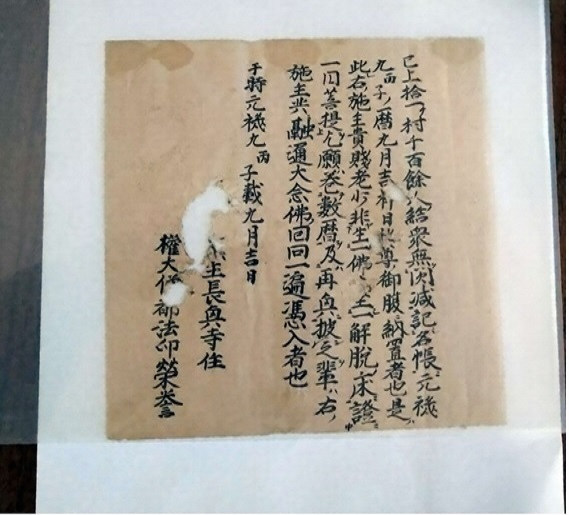 已上拾一村千百餘人結衆無闕減記名帳元禄
九丙子ノ暦九月吉祥日尊御腹納置者也是
此右施主貴賤老少非生一佛土一解脱床證
一同菩提乞願巻数暦及再興披之輩右
施主共融通大念佛回向一遍憑入者也
于時元禄九丙子載九月吉日
生長興寺住
權大僧都法印榮誉